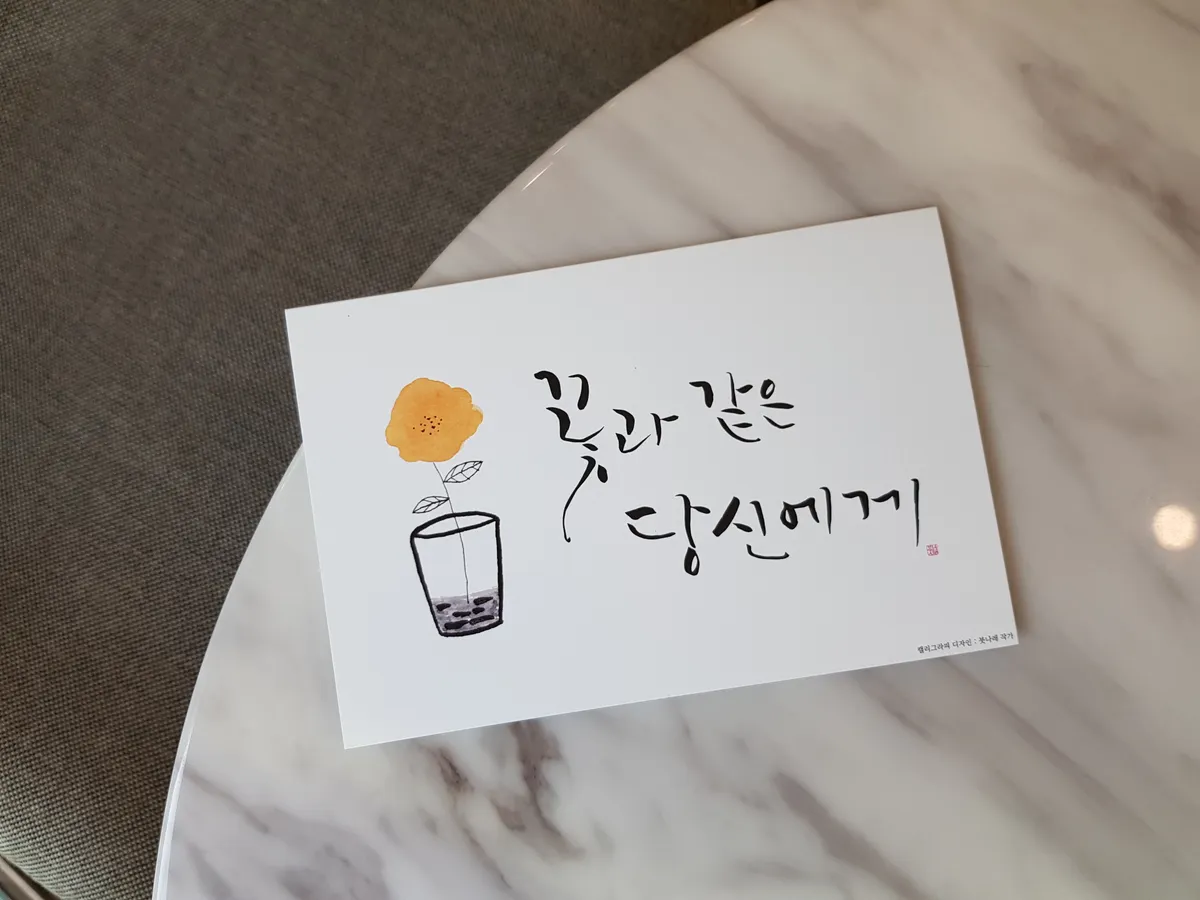 꽃과 같은
당신에게
캘리그라피 디자인 : 붓나래 작가